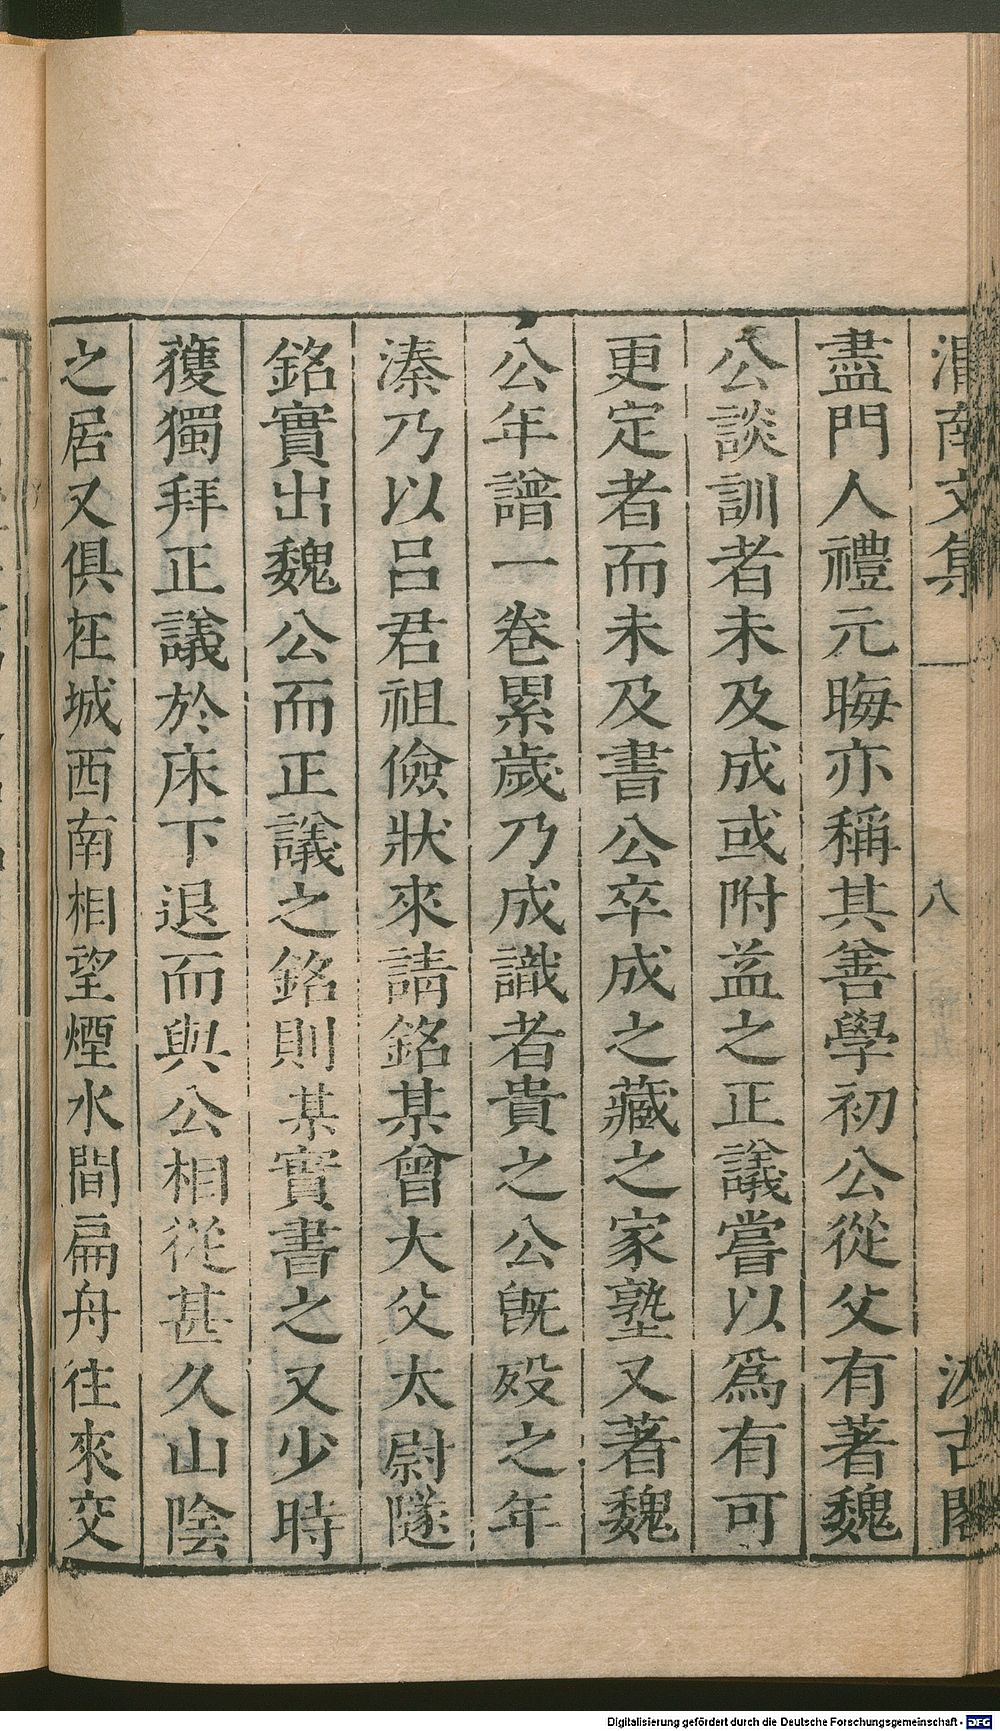 渭南文集 八 汲古閣
盡門人禮元晦亦稱其善學初公從父有著魏
公談訓者未及成或附益之正議嘗以爲有可
更定者而未及書公卒成之藏之家塾又著魏
公年譜一卷累歲乃成識者貴之公旣歿之年
溱乃以呂君祖儉狀來請銘某曾大父太尉隧
銘實出魏公而正議之銘則某實書之又少時
獲獨拜正議於床下退而與公相從甚久山陰
之居又俱在城西南相望煙水間扁舟往來交
Digitalisierung gefördert durch die Deutsche Forschungsgemeinschaft - DFG